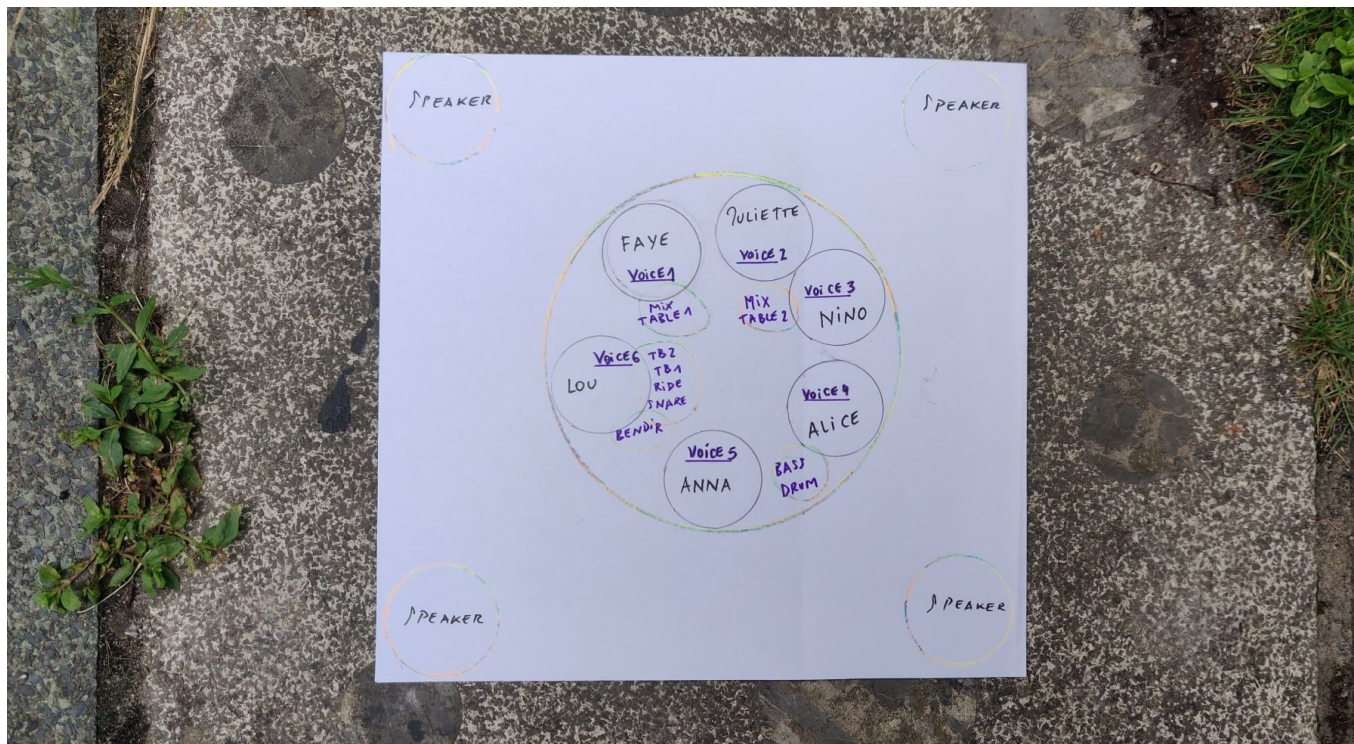 SPEAKER
SPEAKER
FAYE
VOICE1
JULIETTE
VOICE 2
MIX
TABLE1
MIX
TABLE2
VOICE 3
NINO
VOICE6
LOU
TB2
TB1
RIDE
SNARE
BENDIR
VOICE4
ALICE
VOICE 5
ANNA
BASS
DRUM
SPEAKER
SPEAKER